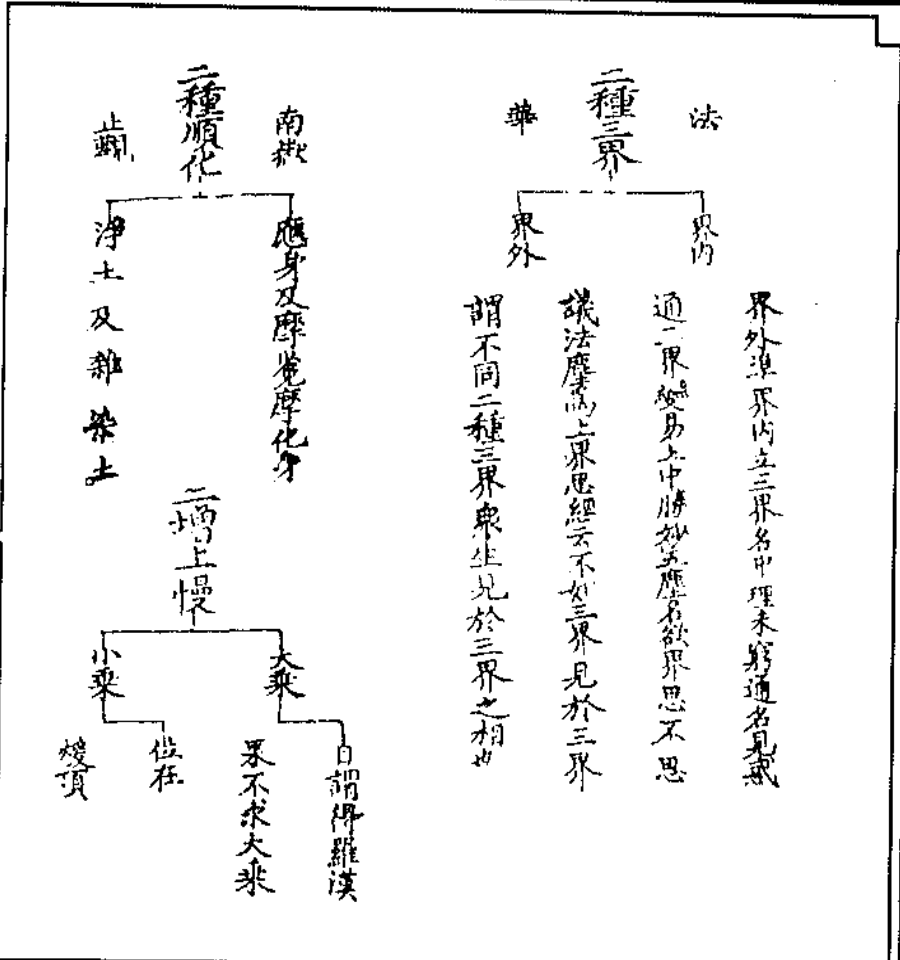 法
華
二種三界
界内
界外
界外準界内立三界名中理未窮通名見惑
通二界變易土中勝妙五塵名欲界思不思
議法塵為上界思經云不如三界見於三界
謂不同二種三界衆生見於三界之相也
南嶽
止觀
二種順化
應身及摩菟摩化身
淨土及雜染土
二増上慢
大乘
謂得羅漢
果不求大乘
小乘
位在
煖頂